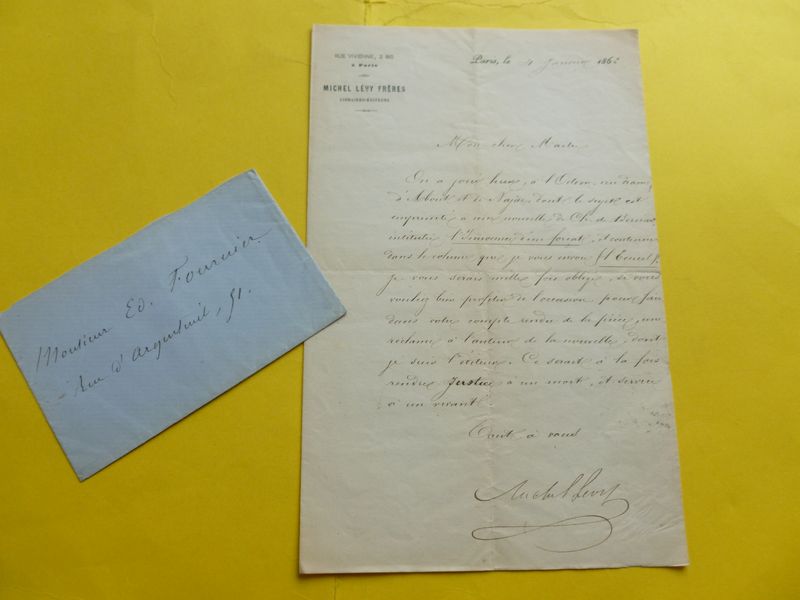 RUE VIVIENNE, 2 BIS
à Paris
MICHEL LÉVY FRÈRES
LIBRAIRES-ÉDITEURS
Paris, le 4 Janvier 186
Mon cher Maître
On a joué hier, à l'Odéon, un drame
d'About et de Najac, dont le sujet est
emprunté à une nouvelle de Ch. de Bernard
intitulée l'Innocence d'un forçat, et contenue
dans le volume que je vous envoie (l'Ecueil).
Je vous serais mille fois obligé, si vous
vouliez bien profiter de l'occasion pour faire
dans votre compte rendu de la pièce, une
réclame à l'auteur de la nouvelle, dont
je suis l'éditeur. Ce serait à la fois
rendre justice à un mort, et service
à un vivant.
Tout à vous
Michel Lévy
Monsieur Ed. Fournier
Rue d'Argenteuil, 51.